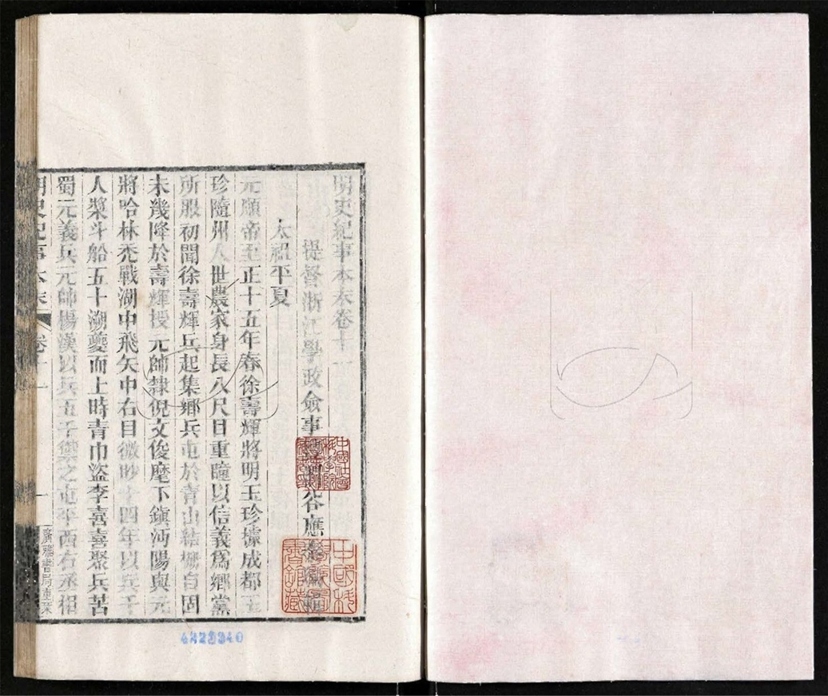 明史紀事本末卷十一
提督浙江學政僉事豐潤谷應泰編輯
太祖平夏
元順帝至正十五年春徐壽輝將明玉珍據成都玉
珍隨州人世農家身長八尺目重瞳以信義爲鄉黨
所服初聞徐壽輝兵起集鄉兵屯於青山結柵自固
未幾降於壽輝授元帥隸倪文俊麾下鎮沔陽與元
將哈林禿戰湖中飛矢中右目微眇十四年以兵千
人槳斗船五十溯夔而上時青巾盜李喜喜聚兵苦
蜀元義兵元帥楊漢以兵五千禦之屯平西右丞相
明史紀事本末 卷十一 一
廣雅書局重栞
4323340